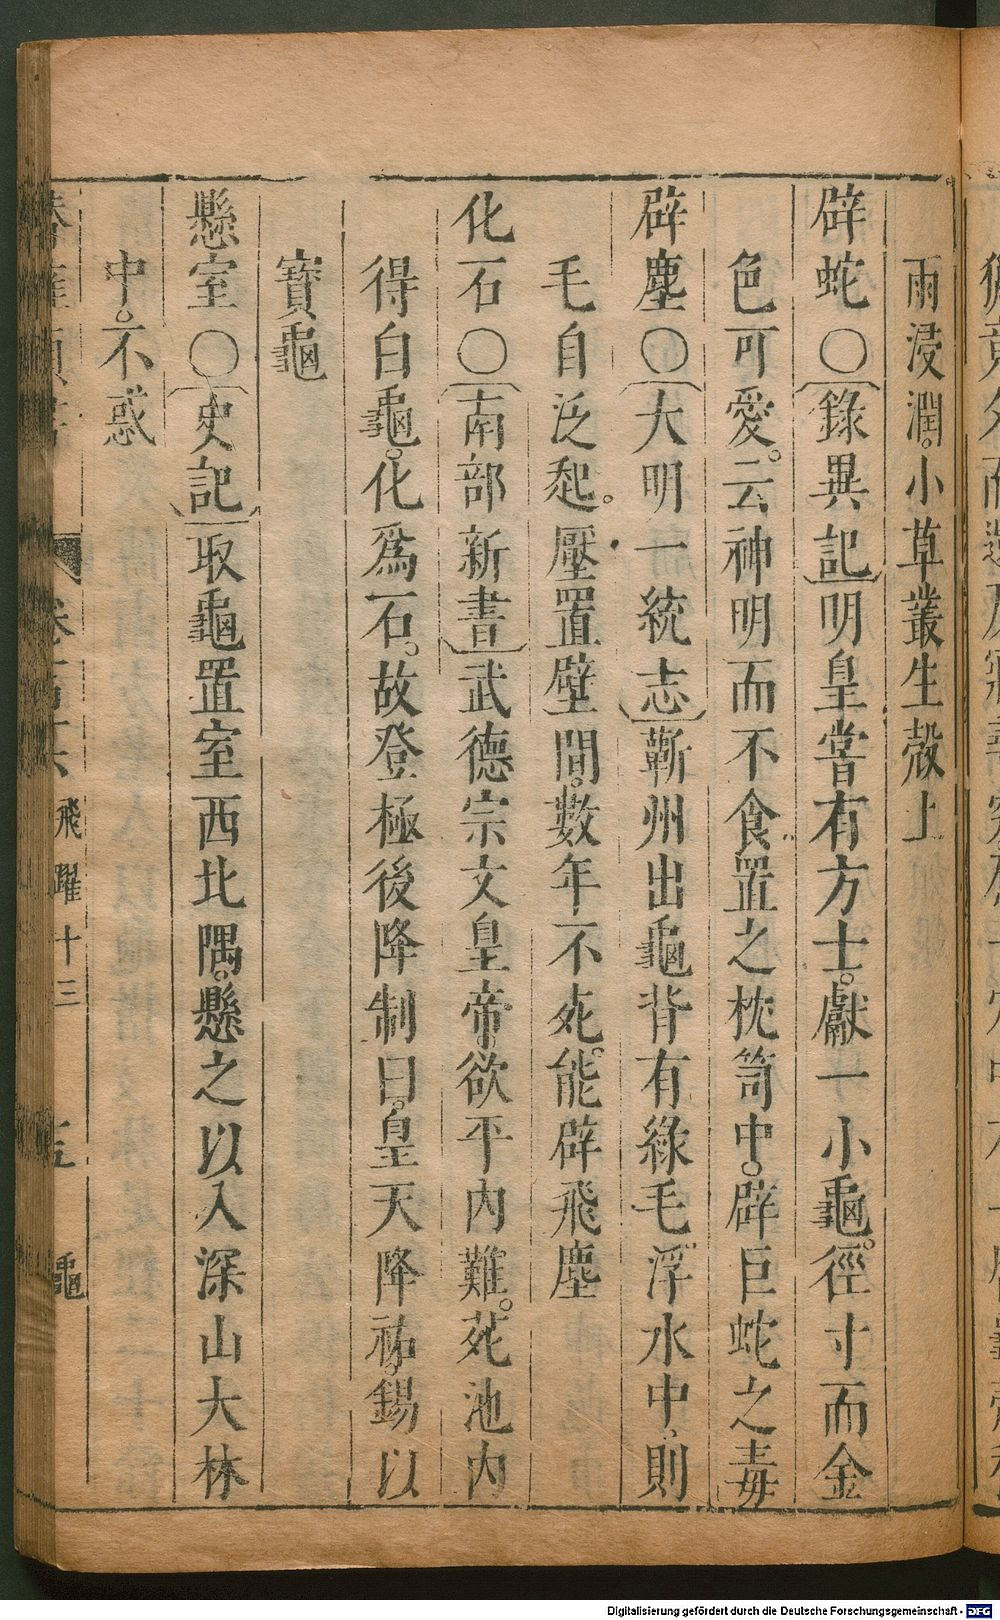 雨浸潤。小草叢生殼上
辟蛇〇錄異記明皇嘗有方士。獻一小龜。徑寸而金
色可愛。云神明而不食置之枕笥中。辟巨蛇之毒
辟塵〇大明一統志蘄州出龜背有綠毛浮水中則
毛自泛起。壓置壁間。數年不死。能辟飛塵
化石〇南部新書武德宗文皇帝。欲平內難。苑池內
得白龜。化爲石。故登極後降制曰。皇天降祐。錫以
寶龜
懸室〇史記取龜置室西北隅。懸之以入深山大林
中。不惑
飛躍十三
龜
Digitalisierung gefördert durch die Deutsche Forschungsgemeinschaft - DFG